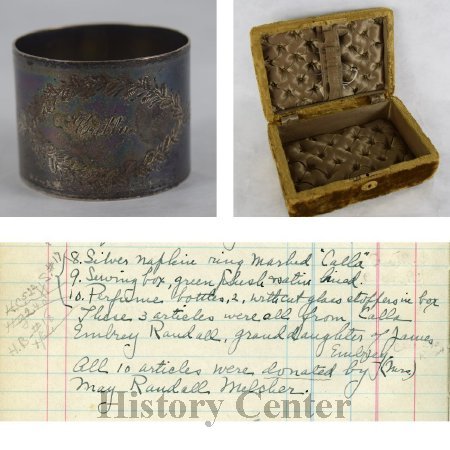 Calla
8. Silver napkin ring marked "Calla"
9. Sewing box, green plush & satin lined.
10. Perfume bottles, 2, with cut glass stoppers in box
These 3 articles were all from Calla
Embrey Randall, grand daughter of James
Embrey
All 10 articles were donated by (Mrs)
May Randall Melcher.
History Center